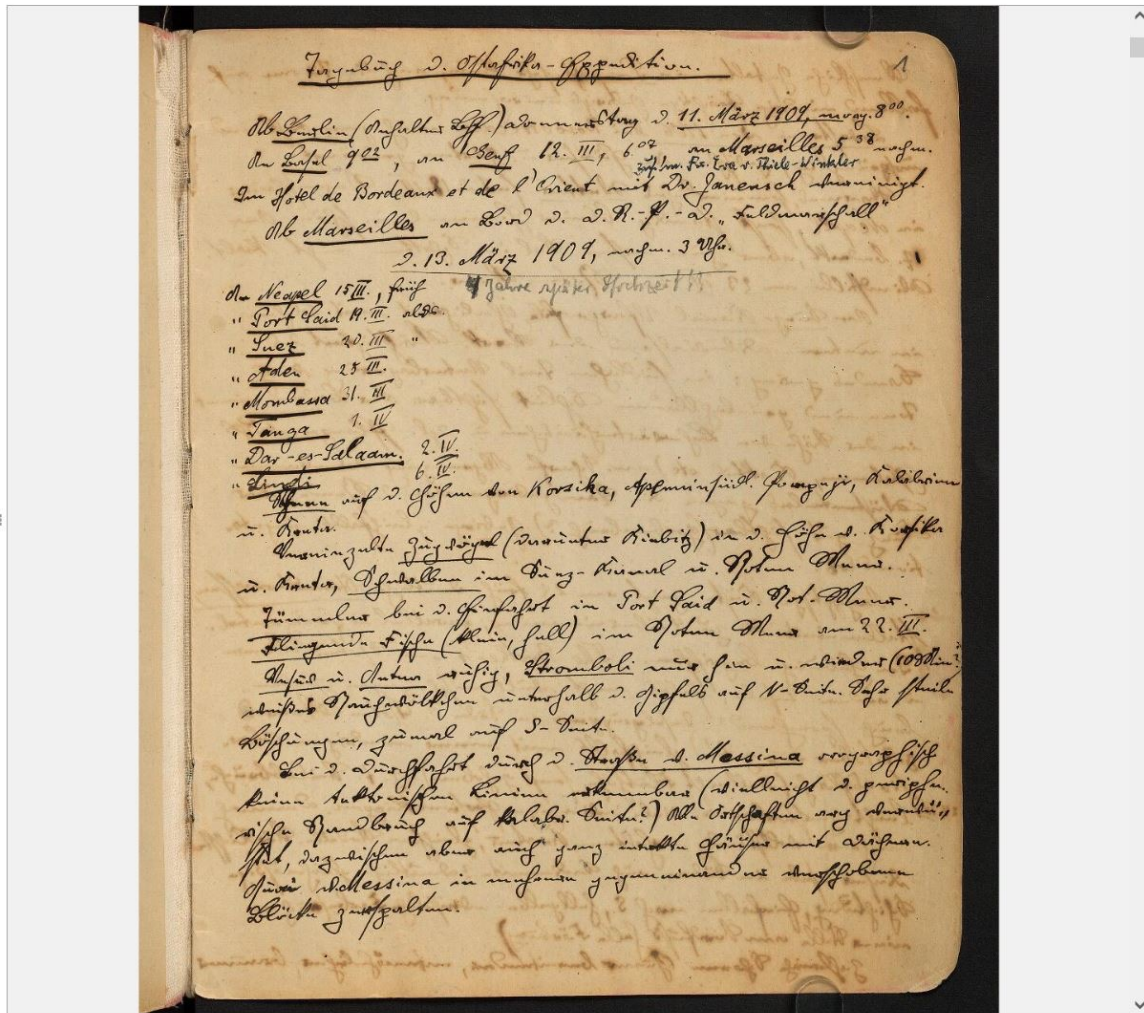 1
Tagebuch d. Ostafrika-Expedition.
Ab Berlin (Anhalter Bhf.) Donnerstag d. 11. März 1909, morg. 8⁰⁰.
An Basel 9⁰², an Genf 12. III, 6⁰² an Marseilles 5³⁸ nachm.
Eva v. Thiele-Winkler
Im Hotel de Bordeaux et de l'Orient mit Dr. Janensch vereinigt.
Ab Marseilles an Bord d. D. R.-P.-D. „Feldmarschall"
d. 13. März 1909, nachm. 3 Uhr.
4 Jahre später Hochzeit!!!
An Neapel 15 III., früh
" Port Said 19. III. abds.
" Suez 20. III "
" Aden 25 III.
" Mombassa 31. III
" Tanga 1. IV
" Dar-es-Salaam. 2. IV
" Lindi 6. IV.
Schnee auf d. Höhen von Korsika, Appenin südl. Pompeji, Kalabrien
u. Kreta.
Vereinzelte Zugvögel (darunter Kiebitz) in d. Höhe v. Korsika
u. Kreta, Schwalben im Suez-Kanal u. Roten Meer.
Tümmler bei d. Einfahrt in Port Said u. Rot. Meer.
Fliegende Fische (klein, hell) im Roten Meer am 22. III.
Vesuv u. Aetna ruhig, Stromboli nur hin u. wieder (10 Min?)
weißes Rauchwölkchen unterhalb d. Gipfels auf N-Seite. Sehr steile
Böschungen, zumal auf S-Seite.
Bei d. Durchfahrt durch d. Straße v. Messina orographisch
keine tektonischen Linien erkennbar (vielleicht d. periphe-
rische Randbruch auf kalabr. Seite?) Alle Ortschaften arg verwü-
stet, dazwischen aber auch ganz intakte Häuser mit Dächern.
v. Messina in mehrere gegeneinander verschobene
Blöcke zerspalten.